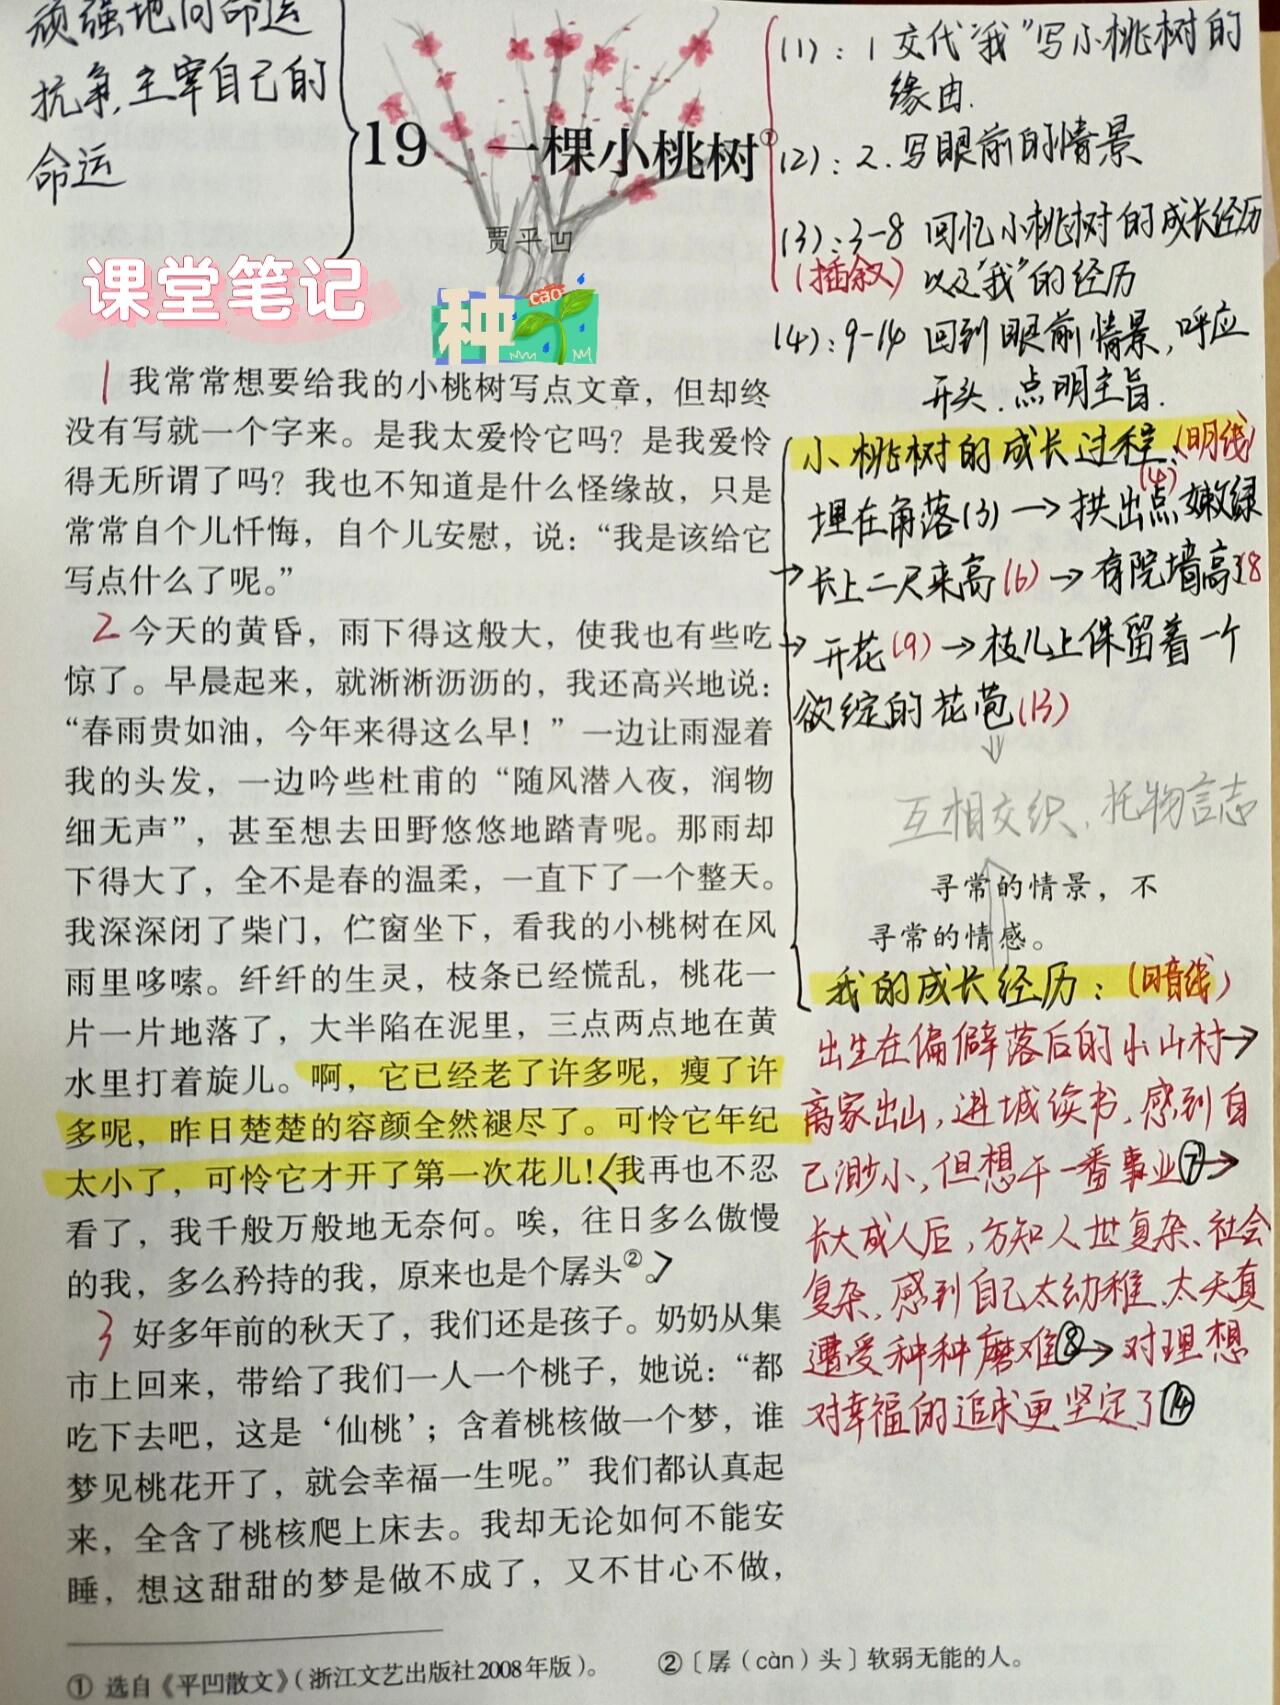 顽强地向命运
抗争,主宰自己的
命运
19 一棵小桃树①
贾平凹
课堂笔记
种cao
(1):1 交代“我”写小桃树的
缘由.
(2):2.写眼前的情景
(3):3-8 回忆小桃树的成长经历
(插叙) 以及“我”的经历
(4):9-14 回到眼前情景,呼应
开头.点明主旨.
小桃树的成长过程:(明线)
埋在角落(3)→拱出点嫩绿(4)
→长上二尺来高(6)→有院墙高了(8
→开花(9)→枝儿上保留着一个
欲绽的花苞(13)
互相交织,托物言志
寻常的情景，不
寻常的情感。
我的成长经历:(暗线)
出生在偏僻落后的小山村→
离家出山,进城读书,感到自
己渺小,但想干一番事业⑦→
长大成人后,方知人世复杂、社会
复杂,感到自己太幼稚、太天真
遭受种种磨难⑧→对理想
对幸福的追求更坚定了⑭
1 我常常想要给我的小桃树写点文章，但却终
没有写就一个字来。是我太爱怜它吗？是我爱怜
得无所谓了吗？我也不知道是什么怪缘故，只是
常常自个儿忏悔，自个儿安慰，说：“我是该给它
写点什么了呢。”
2 今天的黄昏，雨下得这般大，使我也有些吃
惊了。早晨起来，就淅淅沥沥的，我还高兴地说：
“春雨贵如油，今年来得这么早！”一边让雨湿着
我的头发，一边吟些杜甫的“随风潜入夜，润物
细无声”，甚至想去田野悠悠地踏青呢。那雨却
下得大了，全不是春的温柔，一直下了一个整天。
我深深闭了柴门，伫窗坐下，看我的小桃树在风
雨里哆嗦。纤纤的生灵，枝条已经慌乱，桃花一
片一片地落了，大半陷在泥里，三点两点地在黄
水里打着旋儿。啊，它已经老了许多呢，瘦了许
多呢，昨日楚楚的容颜全然褪尽了。可怜它年纪
太小了，可怜它才开了第一次花儿！我再也不忍
看了，我千般万般地无奈何。唉，往日多么傲慢
的我，多么矜持的我，原来也是个孱头②。
3 好多年前的秋天了，我们还是孩子。奶奶从集
市上回来，带给了我们一人一个桃子，她说：“都
吃下去吧，这是‘仙桃’；含着桃核做一个梦，谁
梦见桃花开了，就会幸福一生呢。”我们都认真起
来，全含了桃核爬上床去。我却无论如何不能安
睡，想这甜甜的梦是做不成了，又不甘心不做，
① 选自《平凹散文》（浙江文艺出版社2008年版）。 ②〔孱（càn）头〕软弱无能的人。